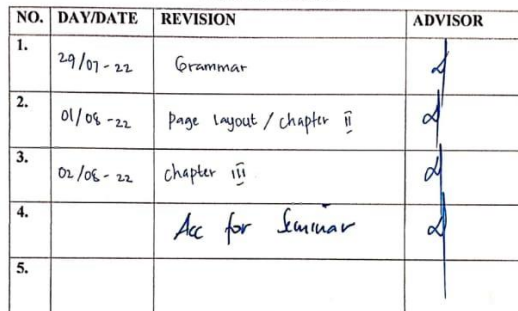 NO. DAY/DATE REVISION ADVISOR
1. 29/07-22 Grammar
2. 01/08-22 page layout / chapter II
3. 02/08-22 chapter III
4. Acc for Seminar
5.